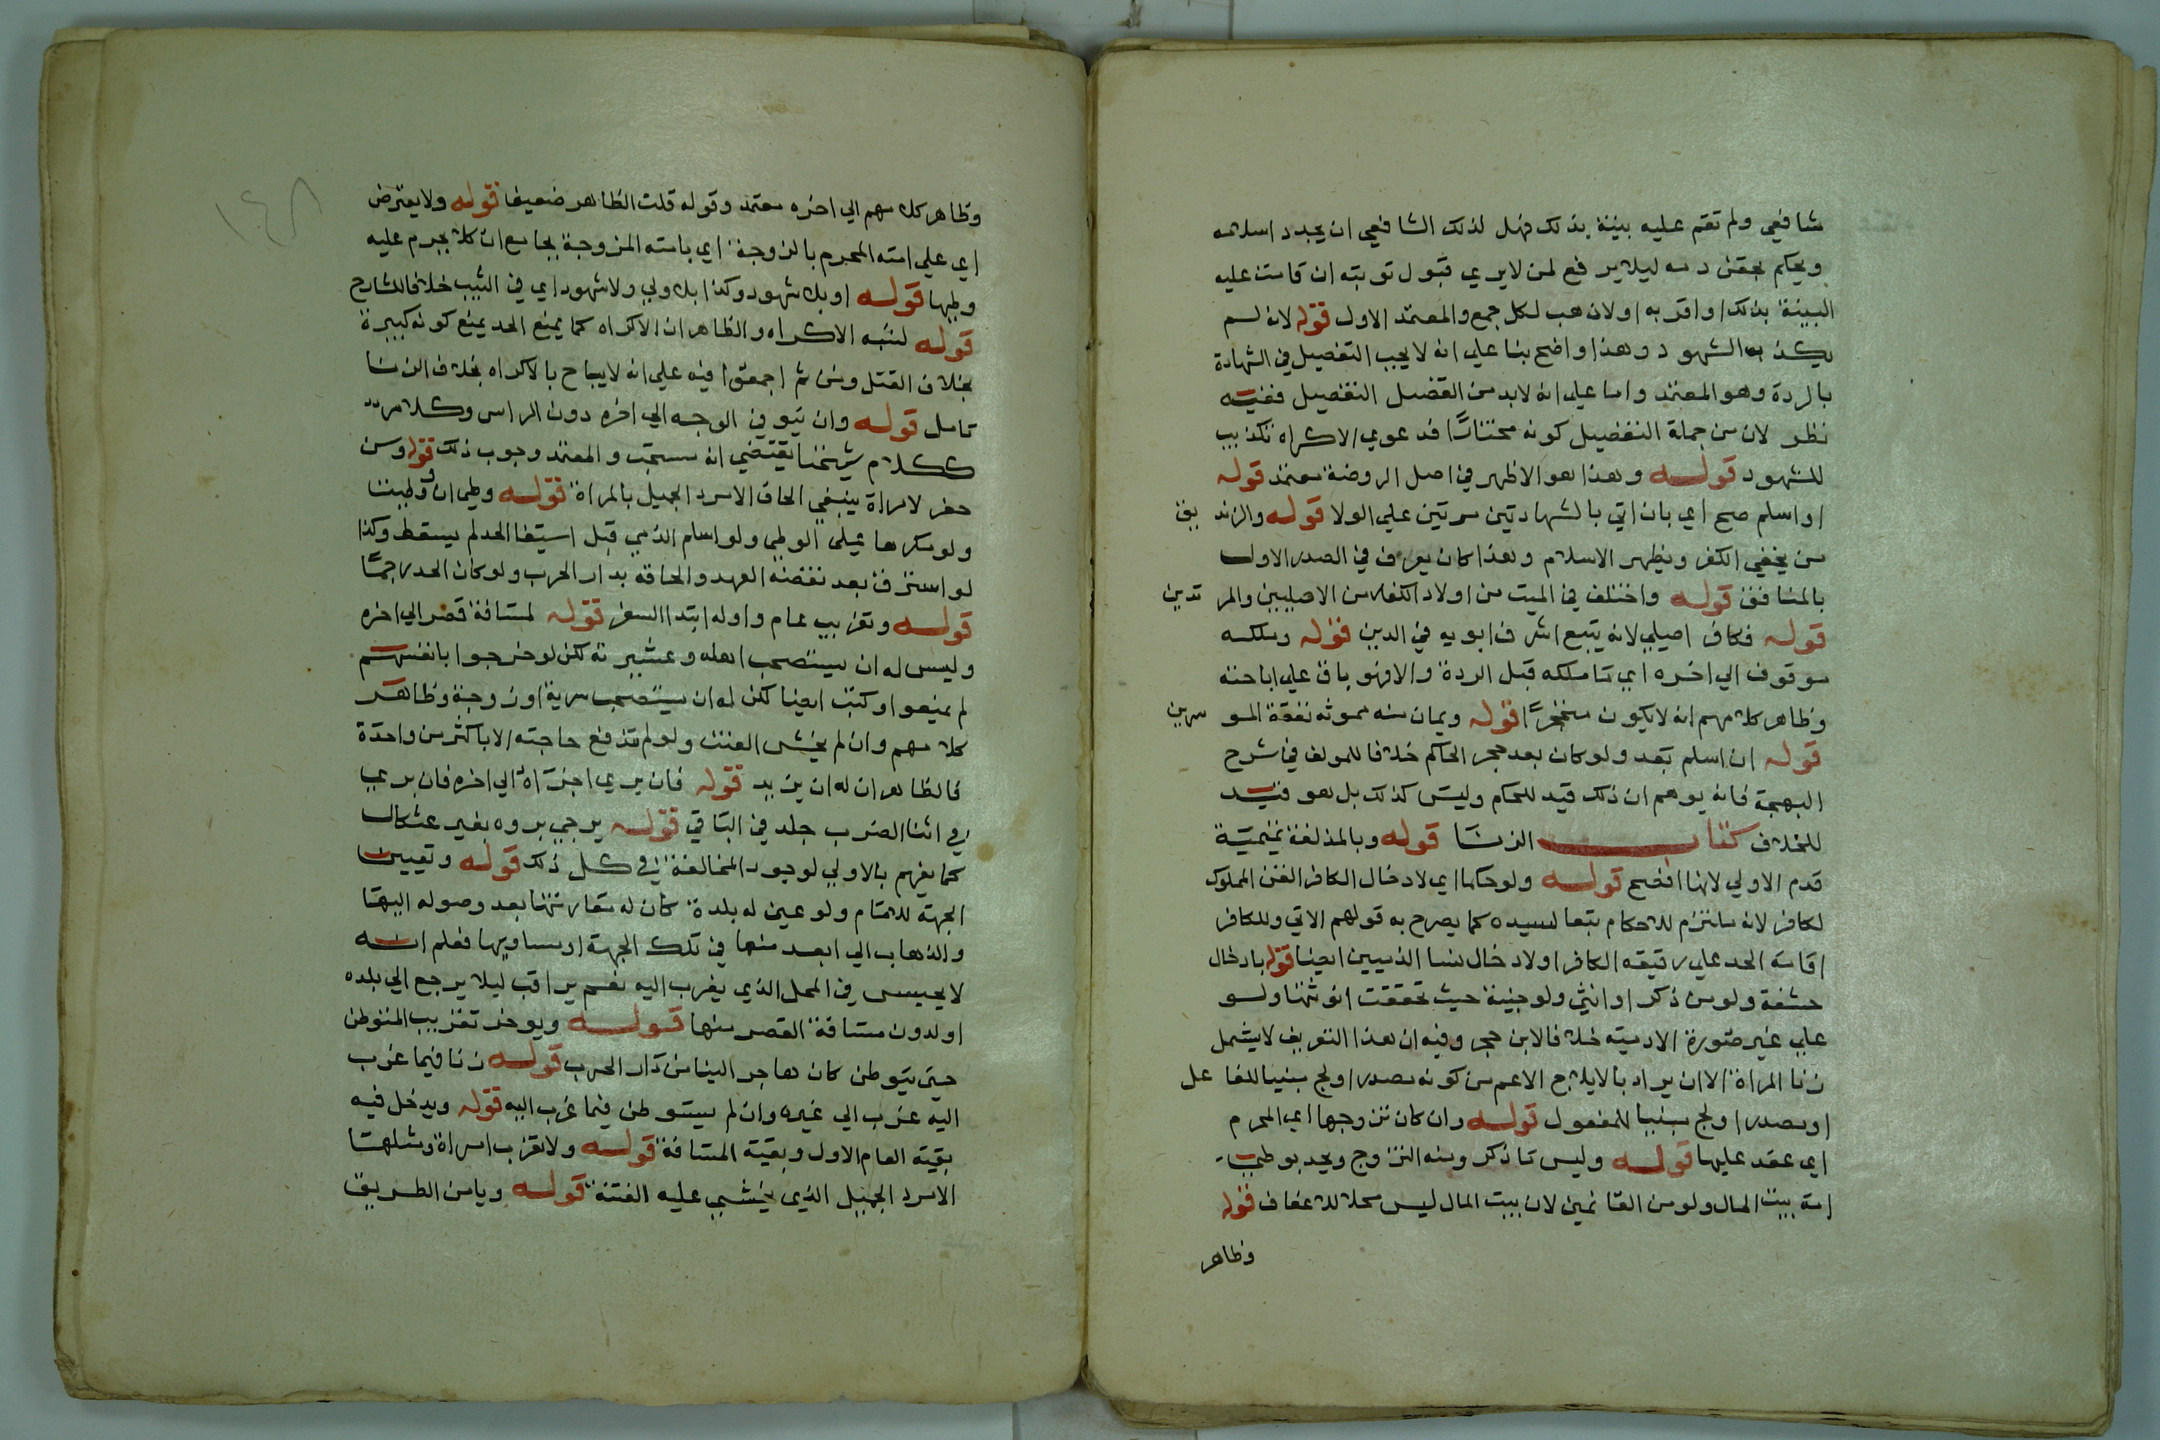 شافعي ولم تقم عليه بينة بذلك فهل لذلك الشافعي ان يجدد اسلامه
ويحكم بحقن دمه ليلا يرفع لمن لا يري قبول توبته ان قامت عليه
البينة بذلك او اقر به او لا ذهب لكل جمع والمعتمد الاول قوله لانه لم
يكذب الشهود وهذا واضح بنا علي انه لا يجب التفصيل في الشهادة
بالردة وهو المعتمد واما علي انه لابد من التفصيل ففيه
نظر لان من جملة التفصيل كونه مختارا فدعوي الاكراه تكذيب
للشهود قوله وهذا هو الاظهر في اصل الروضة معتمد قوله
او اسلم صح اي بان اتي بالشهادتين مرتين علي الولا قوله والزنديق
من يخفي الكفر ويظهر الاسلام وهذا كان يعرف في الصدر الاول
بالمنافق قوله واختلف في الميت من اولاد الكفار من الاصليين والمرتدين
قوله فكافر اصلي لانه يتبع اشرف ابويه في الدين قوله وملكه
موقوف الي اخره اي ما ملكه قبل الردة والا فهو باق علي اباحته
وظاهر كلامهم انه لا يكون قوله ويمان منه ممونه نفقة الموسرين
قوله ان اسلم بعد ولو كان بعد حجر الحاكم خلافا للمولف في شرح
البهجة فانه يوهم ان ذلك قيد للحكم وليس كذلك بل هو قيد
للخلاف كتاب الزنا قوله وبالمد لغة تميمية
قدم الاولي لانها افصح قوله ولو حكما اي لادخال الكافر القن المملوك
لكافر لانه ملتزم للاحكام تبعا لسيده كما يصرح به قولهم الاتي وللكافر
اقامة الحد علي رقيقه الكافر او لادخال نسا الذميين ايضا قوله بادخال
حشفة ولو من ذكر او انثي ولو جنية حيث تحققت انوثتها ولو
علي غير صورة الادمية خلافا لابن حجر وفيه ان هذا التعريف لا يشمل
زنا المراة الا ان يراد بالايلاج الاعم من كونه مصدر اولج مبنيا للفاعل
او مصدر اولج مبنيا للمفعول قوله وان كان تزوجها اي المحرم
اي عقد عليها قوله وليس ما ذكر ومنه التزوج ويحد بوطي
امة بيت المال ولو من الغانمين لان بيت المال ليس محلا للاعفاف قوله
وظاهر
١٤٨
وظاهر كلامهم الي اخره معتمد وقوله قلت الظاهر ضعيف قوله ولا يعترض
اي علي امته المحرم بالزوجة اي بامته المزوجة بجامع ان كلا يحرم عليه
وطيها قوله او بلا شهود وكذا بلا ولي ولا شهود اي في الثيب خلافا للشارح
قوله لشبه الاكراه والظاهر ان الاكراه كما يمنع الحد يمنع كونه كبيرة
بخلاف القتل ومن ثم اجمعوا فيه علي انه لا يباح بالاكراه بخلاف الزنا
تامل قوله وان تتو في الوجه الي اخره دون الراس وكلامر
ككلام شيخنا يقتضي انه مستحب والمعتمد وجوب ذلك قوله ومن
حفر لامراة ينبغي الحاق الامرد الجميل بالمراة قوله وطي او وطيتنا
ولو مكرها علي الوطي ولو اسلم الذمي قبل استيفا الحد لم يسقط وكذا
لو استرق بعد نقضه العهد والحاقه بدار الحرب ولو كان الحد رجما
قوله وتغريب عام واوله ابتدا السفر قوله لمسافة قصر الي اخره
وليس له ان يستصحب اهله وعشيرته لكن لو خرجوا بانفسهم
لم يمنعوا وكتب ايضا لكن له ان يستصحب سرية او زوجة وظاهر
كلامهم وان لم يخش العنت ولو لم تدفع حاجته الا باكثر من واحدة
فالظاهر ان له ان يزيد قوله فان يري اجزاه الي اخره فان بري
في اثنا الضرب جلد في الباقي قوله يرجي بروه بغير عثكال
كما يفهم بالاولي لوجود المخالفة في كل ذلك قوله وتعيين
الجهة للامام ولو عين له بلدة كان له مفارقتها بعد وصوله اليها
والذهاب الي ابعد منها في تلك الجهة او مساويها فعلم انه
لا يحبس في المحل الذي يغرب اليه نعم يراقب ليلا يرجع الي بلده
او لدون مسافة القصر منها قوله ويوخر تغريب المتوطن
حتي يتوطن كان هاجر الينا من دار الحرب قوله زنا فيما غرب
اليه غرب الي غيره وان لم يستوطن فيما غرب اليه قوله ويدخل فيه
بقية العام الاول وبقية المسافة قوله ولا تغرب امراة ومثلها
الامرد الجميل الذي يخشي عليه الفتنة قوله ويامن الطريق